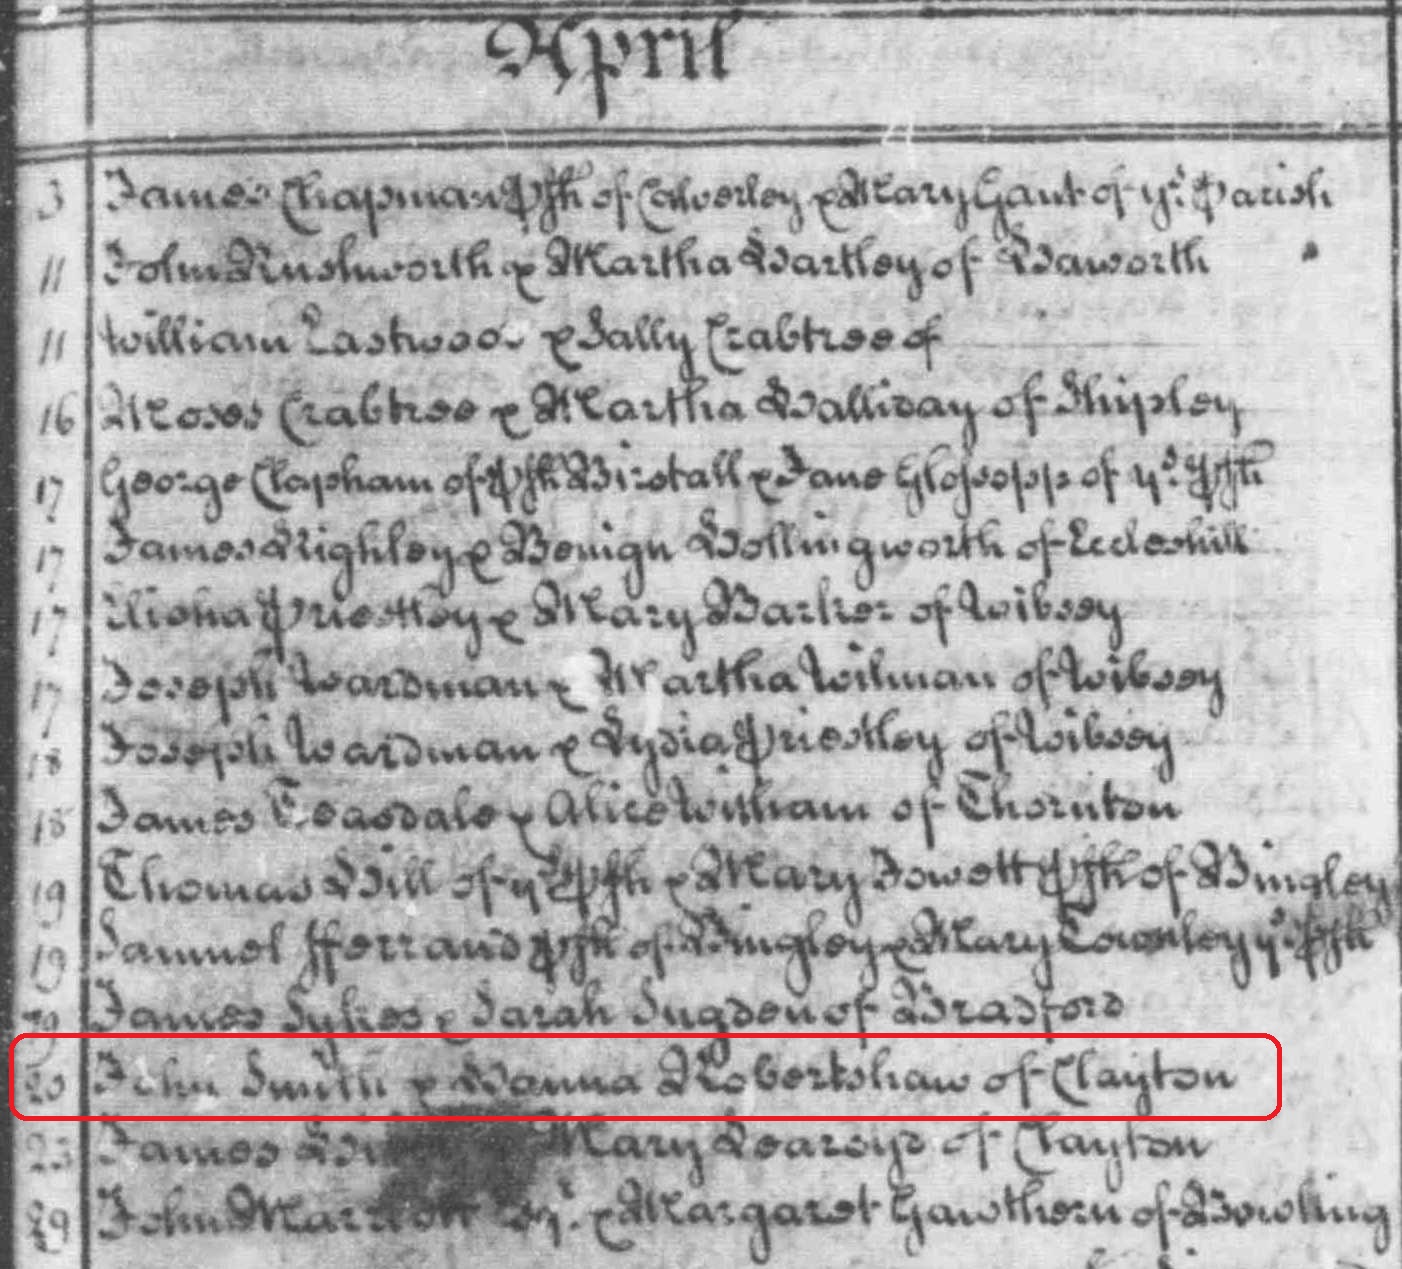 April
3 James Chapman Psh of Calverley & Mary Gant of ys Parish
11 John Rushworth & Martha Hartley of Haworth
11 William Eastwood & Sally Crabtree of
16 Moses Crabtree & Martha Halliday of Shipley
17 George Clapham of Psh Birstall & Jane Glossopp of ys Psh
17 James Kighley & Benign Hollingworth of Eccleshill
17 Elisha Priestley & Mary Barker of Wibsey
17 Joseph Wardman & Martha Wilman of Wibsey
18 Joseph Wardman & Lydia Priestley of Wibsey
18 James Teasdale & Alice Witham of Thornton
19 Thomas Hill of ys Psh & Mary Jowett Psh of Bingley
19 Samuel fferrand Psh of Bingley & Mary Townley ys Psh
19 James Sykes & Sarah Sugden of Bradford
20 John Smith & Hanna Robertshaw of Clayton
23 James Mary of Clayton
29 John Marriott & Margaret Gawthorn of Bowling